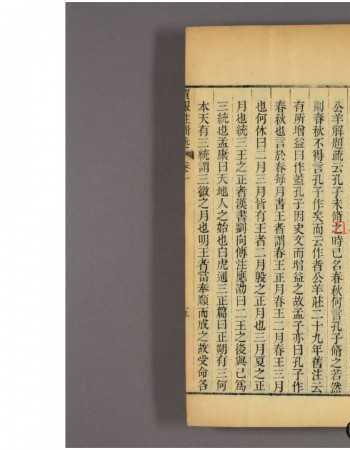 公羊解題疏云孔子未脩之時已名春秋何言孔子脩之若然
則春秋不得言孔子作矣而云作者公羊莊二十九年舊注云
有所增益曰作蓋孔子因史文而增益之故孟子亦曰孔子作
春秋也言於春每月書王者謂春王正月春王二月春王三月
也何休曰二月三月皆有王者二月殷之正月也三月夏之正
月也統三王之正者漢書劉向傳注應劭曰二王之後與己爲
三統也孟康曰天地人之始也白虎通三正篇曰正朔有三何
本天有三統謂三微之月也明王者當奉順而成之故受命各